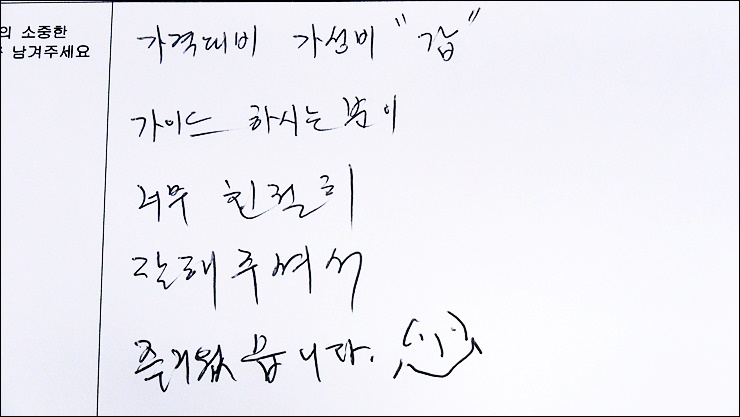 의 소중한
남겨주세요
가격대비 가성비 "갑"
가이드 하시는 분이
너무 친절히
잘해주셔서
즐거웠읍니다.